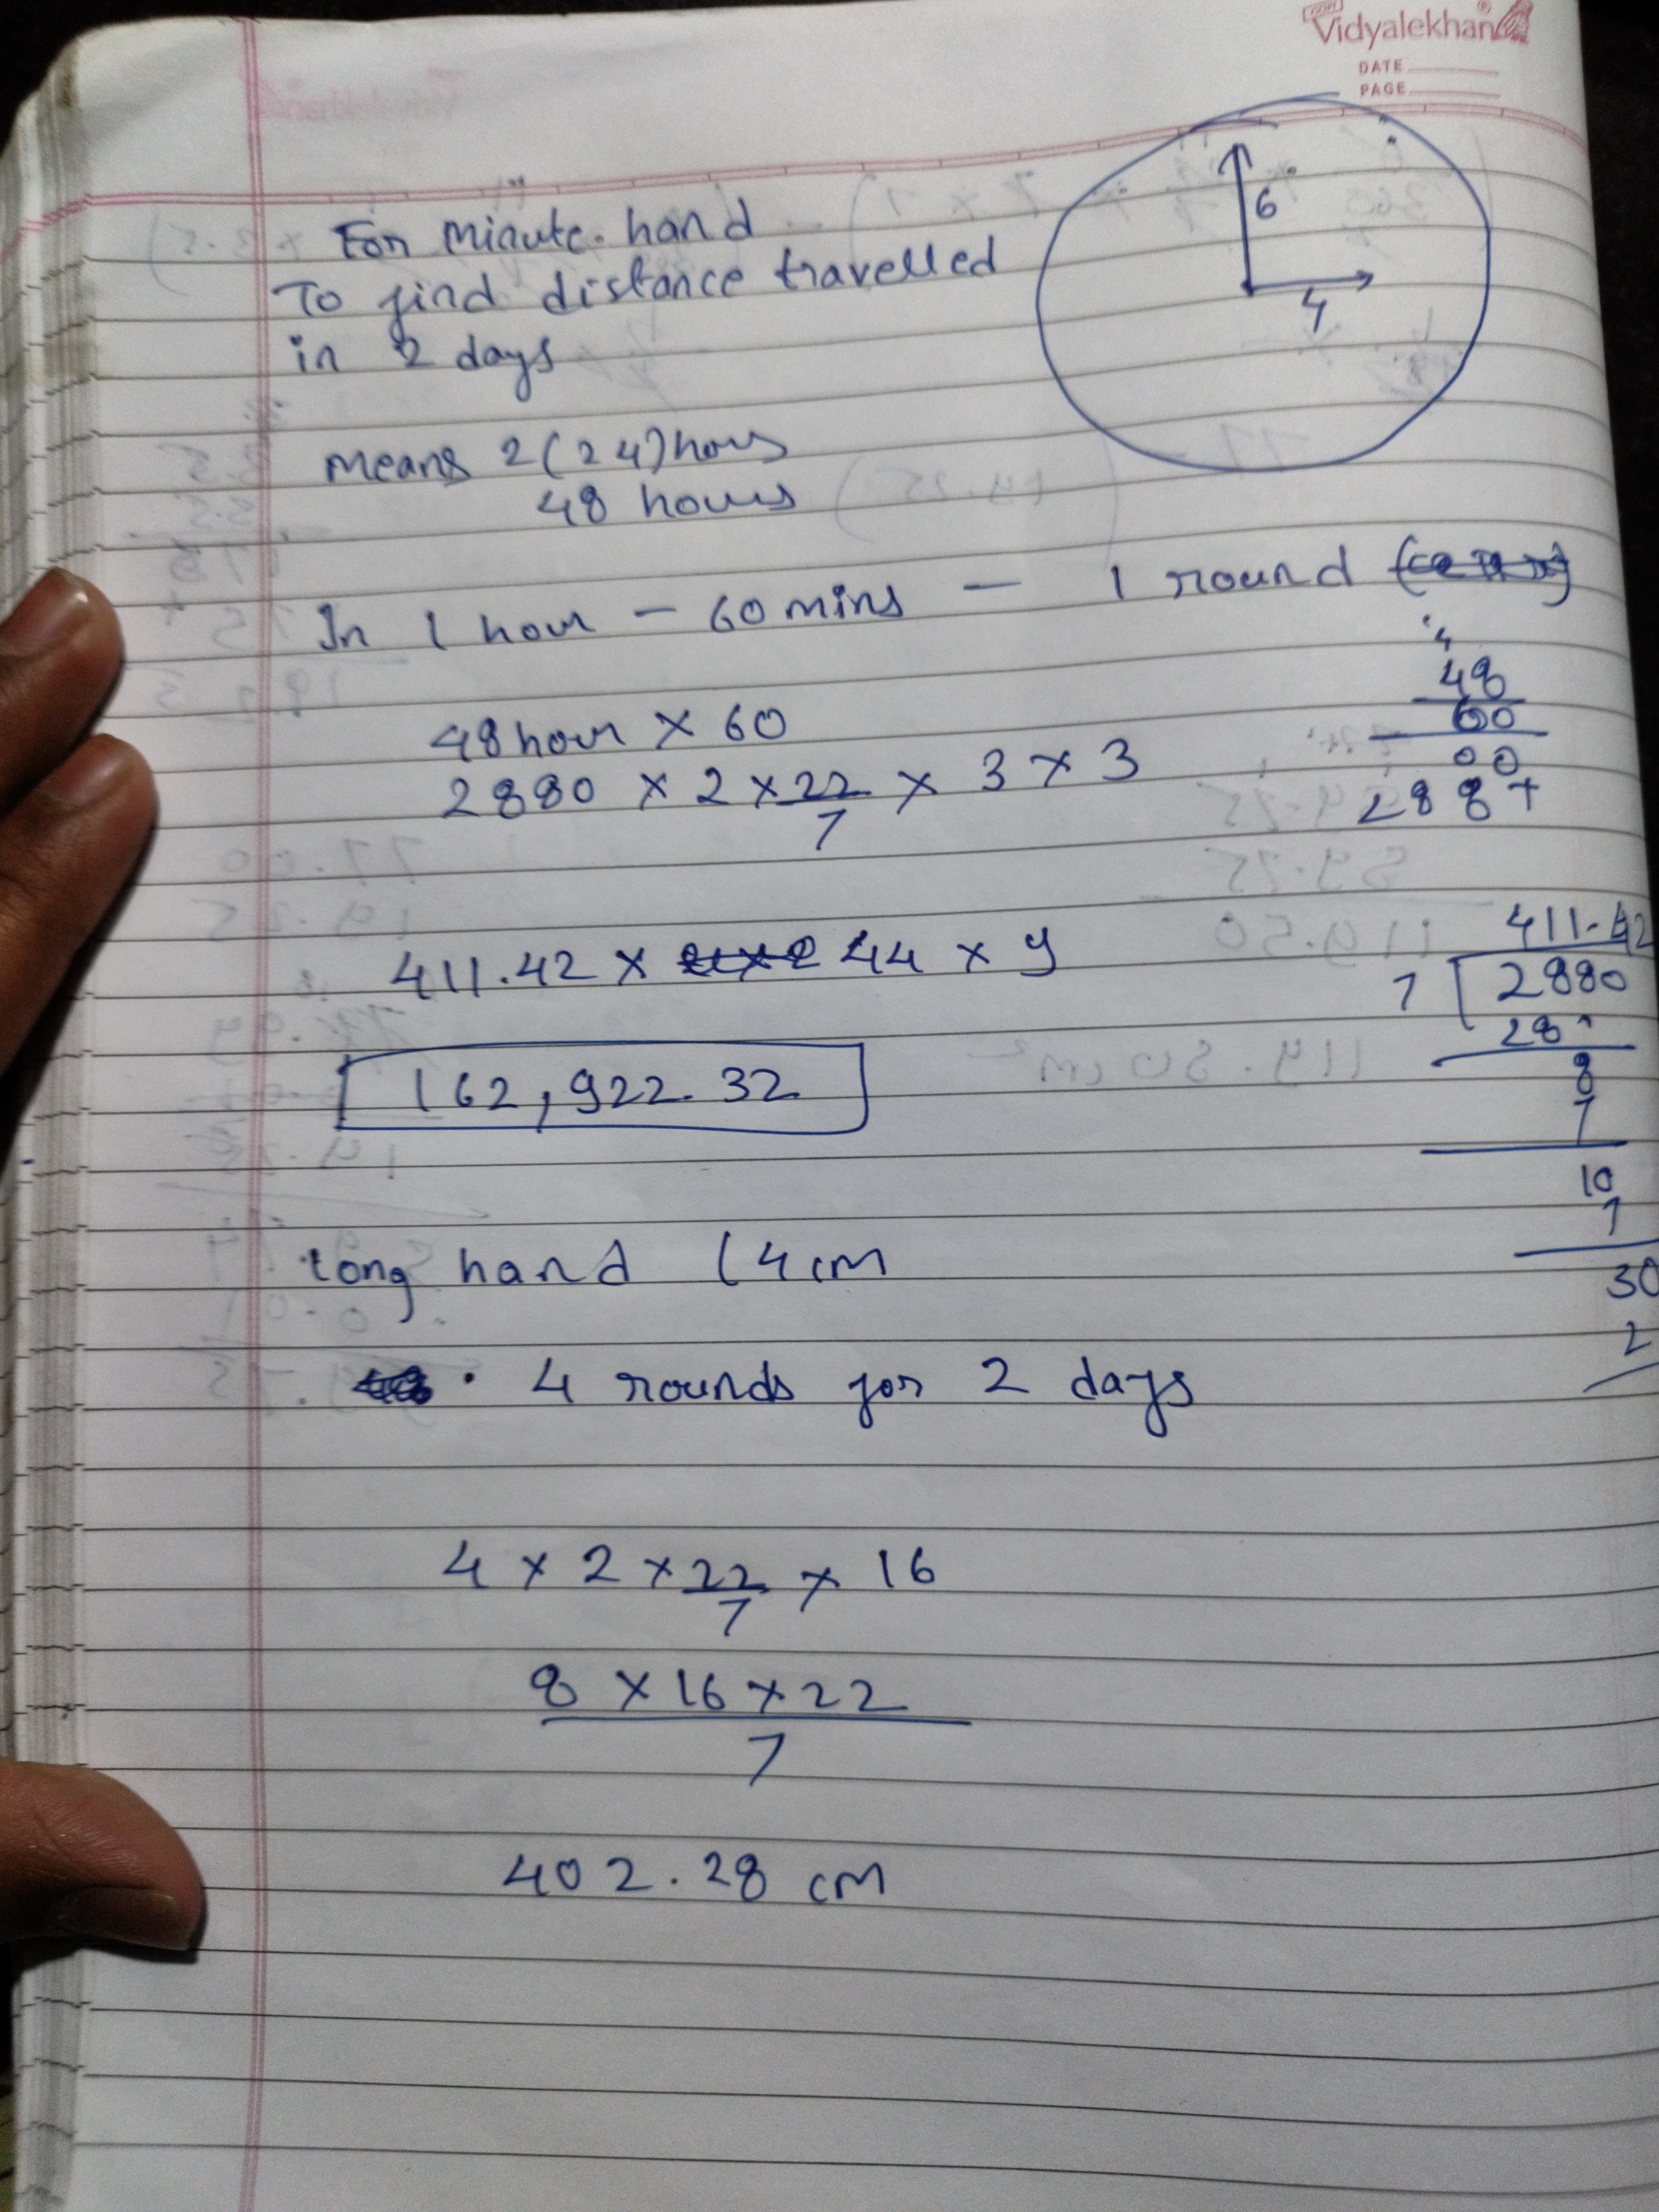 Vidyalekhan
DATE
PAGE
6
4
For minute hand
To find distance travelled
in 2 days
means 2(24)hours
48 hours
In 1 hour - 60 mins - 1 round
4
48
60
00
288+
48 hour × 60
2880 × 2 × 22/7 × 3 × 3
411.42 × 44 × 9
411.42
7 2880
28
8
7
10
7
30
2
162,922.32
long hand (4cm
4 rounds for 2 days
4 × 2 × 22/7 × 16
8 × 16 × 22
7
402.28 cm